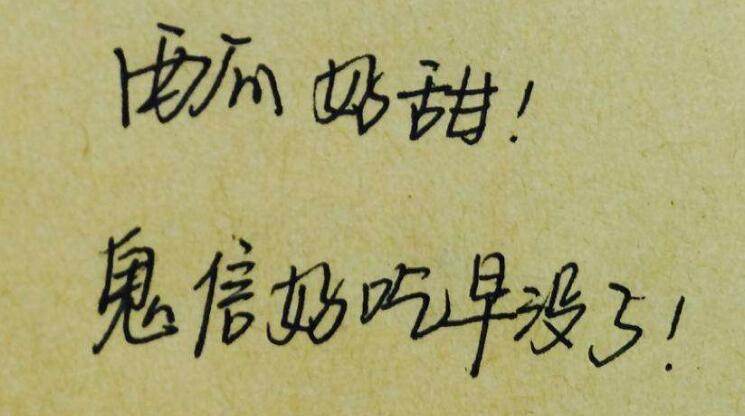 西瓜好甜!
鬼信好吃早没了!